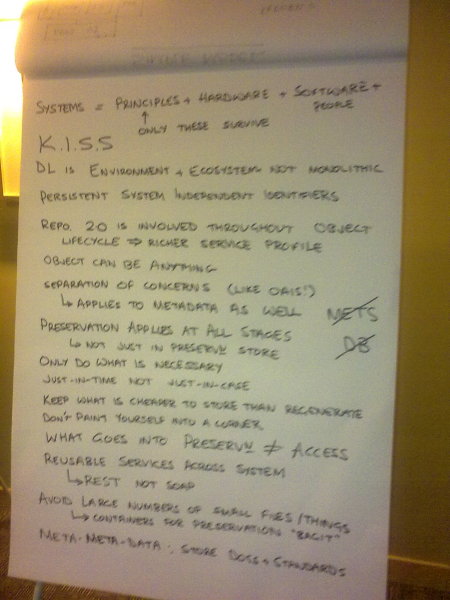 SYSTEMS = PRINCIPLES + HARDWARE + SOFTWARE + PEOPLE
↑
ONLY THESE SURVIVE
K.I.S.S
DL IS ENVIRONMENT + ECOSYSTEM NOT MONOLITHIC
PERSISTENT SYSTEM INDEPENDENT IDENTIFIERS
REPO. 2.0 IS INVOLVED THROUGHOUT OBJECT
LIFECYCLE ⇒ RICHER SERVICE PROFILE
OBJECT CAN BE ANYTHING
SEPARATION OF CONCERNS (LIKE OAIS!)
↳ APPLIES TO METADATA AS WELL METS
PRESERVATION APPLIES AT ALL STAGES
↳ NOT JUST IN PRESERVN STORE DB
ONLY DO WHAT IS NECESSARY
JUST-IN-TIME NOT JUST-IN-CASE
KEEP WHAT IS CHEAPER TO STORE THAN REGENERATE
DON'T PAINT YOURSELF INTO A CORNER
WHAT GOES INTO PRESERVN ≠ ACCESS
REUSABLE SERVICES ACROSS SYSTEM
↳ REST NOT SOAP
AVOID LARGE NUMBERS OF SMALL FILES/THINGS
↳ CONTAINERS FOR PRESERVATION "BAGIT"
META-META-DATA: STORE DOCS + STANDARDS